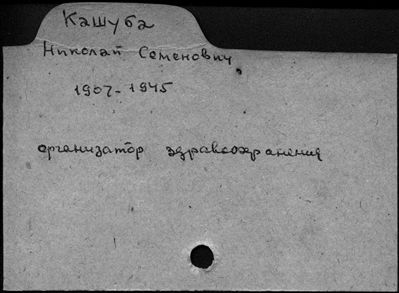 Кашуба
Николай Семенович
1907-1945
организатор здравоохранения